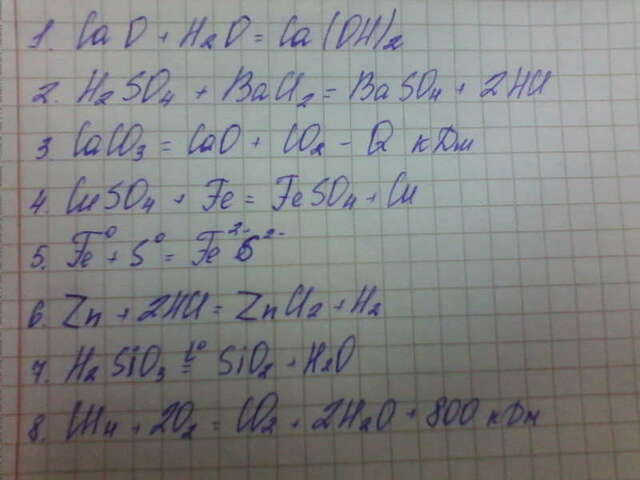 1. CaO + H2O = Ca(OH)2
2. H2SO4 + BaCl2 = BaSO4 + 2HCl
3 CaCO3 = CaO + CO2 - Q кДж
4. CuSO4 + Fe = FeSO4 + Cu
5. Fe⁰ + S⁰ = Fe²⁻S²⁻
6. Zn + 2HCl = ZnCl2 + H2
7. H2SiO3 t⁰= SiO2 + H2O
8. CH4 + 2O2 = CO2 + 2H2O + 800 кДж